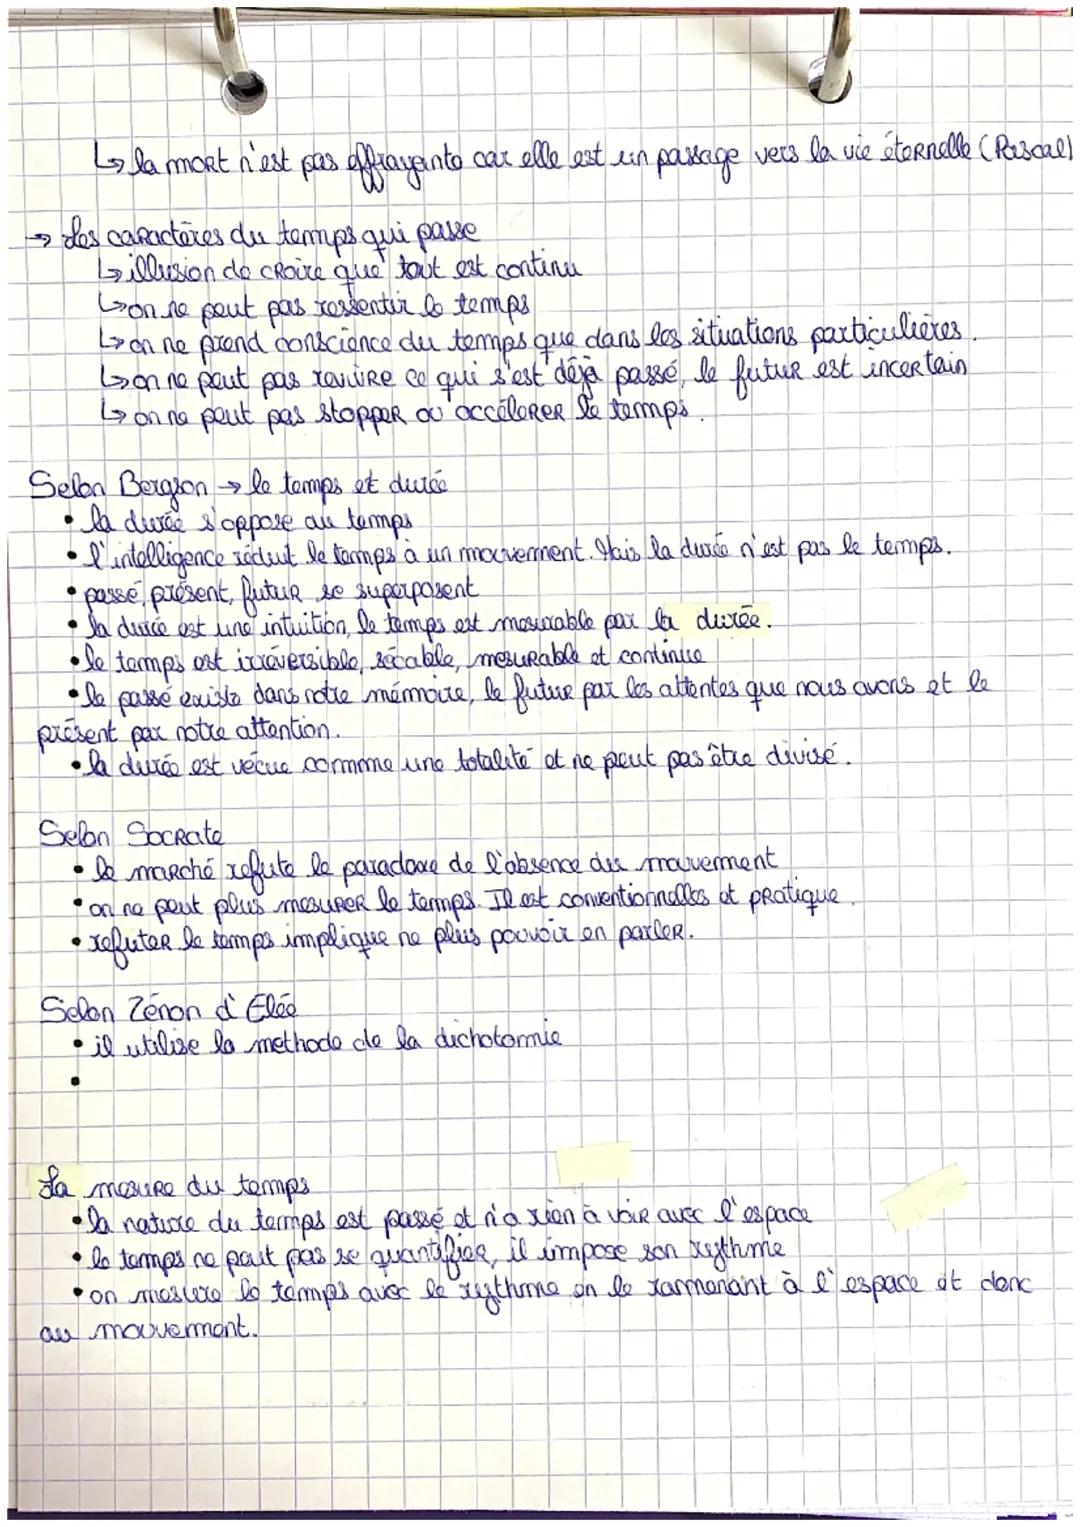 ↳ la mort n'est pas effrayante car elle est un passage vers la vie éternelle (Pascal)
→ Les caractères du temps qui passe
↳ illusion de croire que tout est continu
↳ on ne peut pas ressentir le temps
↳ on ne prend conscience du temps que dans les situations particulières.
↳ on ne peut pas revivre ce qui s'est déjà passé, le futur est incertain
↳ on ne peut pas stopper ou accélerer le temps.
Selon Bergson → le temps et durée
• la durée s'oppose au temps
• l'intelligence réduit le temps à un mouvement. Mais la durée n'est pas le temps.
• passé, présent, futur se superposent
• la durée est une intuition, le temps est mesurable par la durée.
• le temps est irréversible, sécable, mesurable et continue
• le passé existe dans notre mémoire, le future par les attentes que nous avons et le
présent par notre attention.
• la durée est vécue comme une totalité et ne peut pas être divisé.
Selon Socrate
• le marché refute le paradoxe de l'absence du mouvement
• on ne peut plus mesurer le temps. Il est conventionnelles et pratique.
• refuter le temps implique ne plus pouvoir en parler.
Selon Zénon d'Elée
• il utilise la methode de la dichotomie
•
La mesure du temps
• la nature du temps est passé et n'a rien à voir avec l'espace
• le temps ne peut pas se quantifier, il impose son rythme
• on mesure le temps avec le rythme en le ramenant à l'espace et donc
au mouvement.